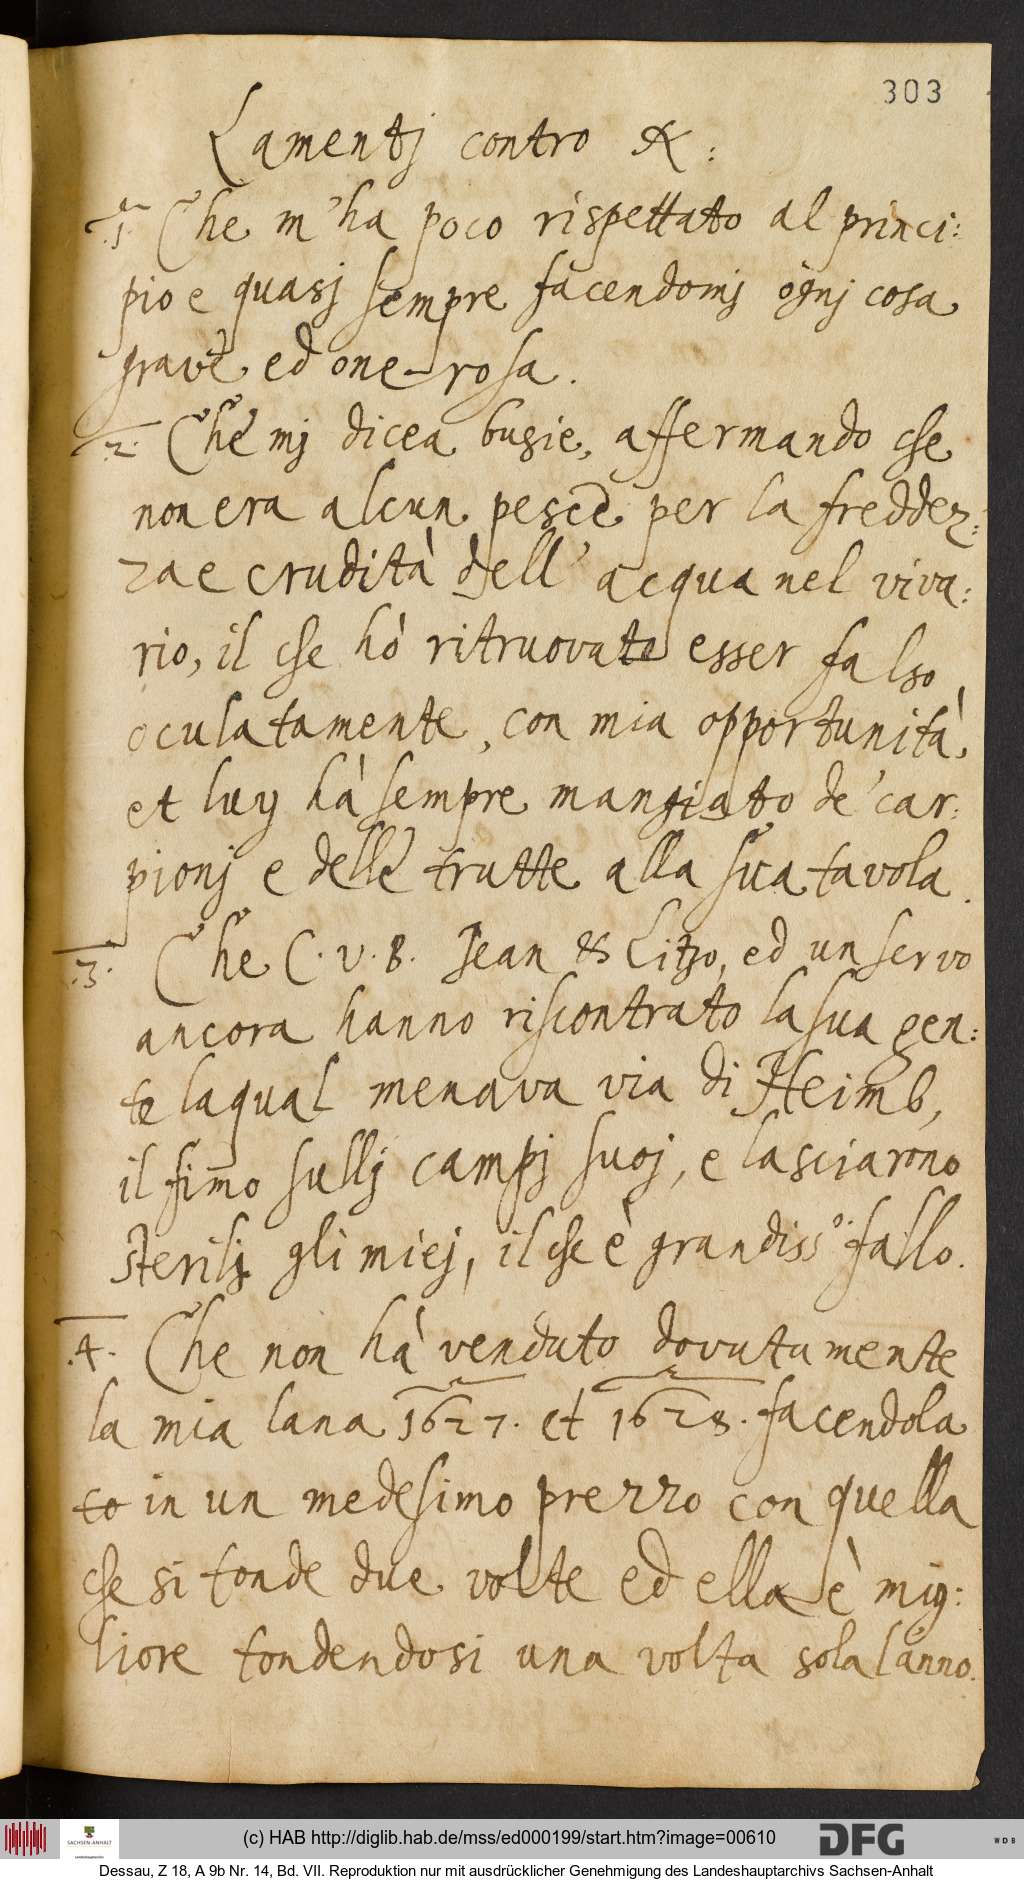 303
Lamentj contro K:
.1. Che m'ha poco rispettato al princi:
pio e quasj sempre facendomj ognj cosa
grave ed onerosa.
.2. Che mj dicea busie, affermando che
non era alcun pesce per la freddez:
za e crudità dell' acqua nel viva:
rio, il che hò ritruovato esser falso
oculatamente, con mia opportunità,
et luy hà sempre mangiato de' car:
pionj e delle trutte alla sua tavola.
.3. Che C. v. B. Jean & Litzo, ed un servo
ancora hanno riscontrato la sua gen:
te laqual menava via di Heimb,
il fimo sullj campj suoj, e lasciarono
sterilj gli miej, il che è grandiss.o fallo.
.4. Che non hà venduto dovutamente
la mia lana 1627. et 1628. facendola
to in un medesimo prezzo con quella
che si tonde due volte ed ella è mig:
liore tondendosi una volta sola l'anno.
(c) HAB http://diglib.hab.de/mss/ed000199/start.htm?image=00610
SACHSEN-ANHALT
DFG
WDB
Dessau, Z 18, A 9b Nr. 14, Bd. VII. Reproduktion nur mit ausdrücklicher Genehmigung des Landeshauptarchivs Sachsen-Anhalt